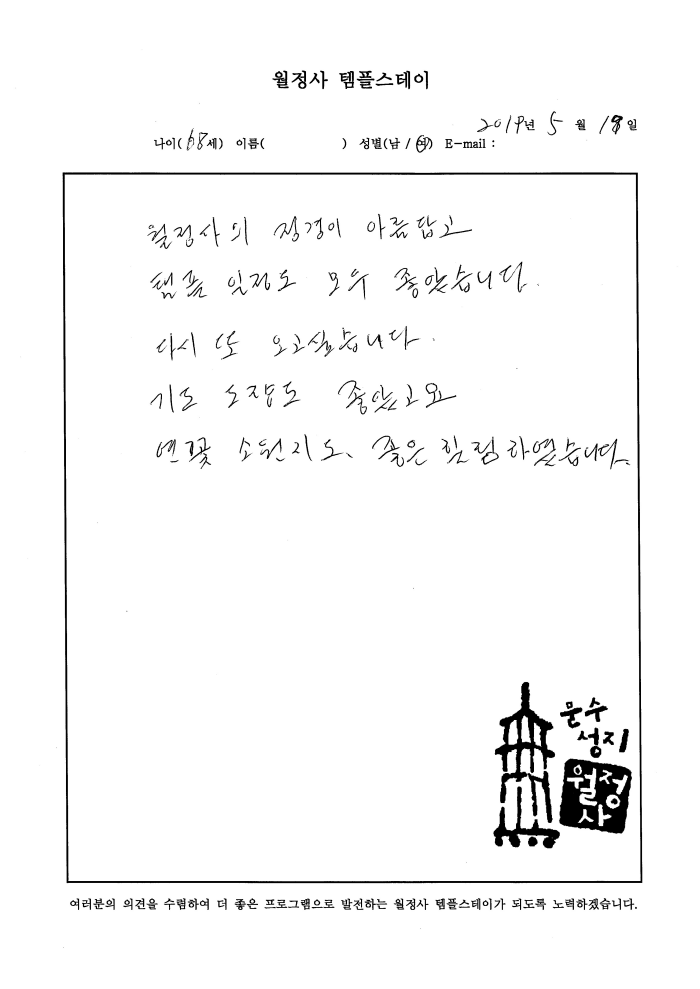 월정사 템플스테이
2019년 5 월 18일
나이(68세) 이름( ) 성별(남 / 여) E-mail :
월정사의 정경이 아름답고
템플 일정도 모두 좋았습니다.
다시 또 오고싶습니다.
기도 도량도 좋았고요
연꽃 소원지도, 좋은 하였습니다.
문수
성지
월정
사
여러분의 의견을 수렴하여 더 좋은 프로그램으로 발전하는 월정사 템플스테이가 되도록 노력하겠습니다.